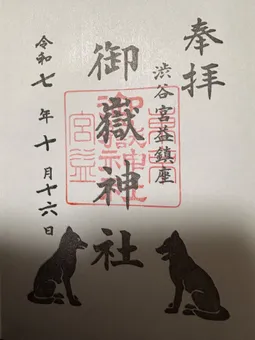 奉拝
渋谷宮益鎮座
御嶽神社
令和七年十月十六日
御嶽神社
宮益